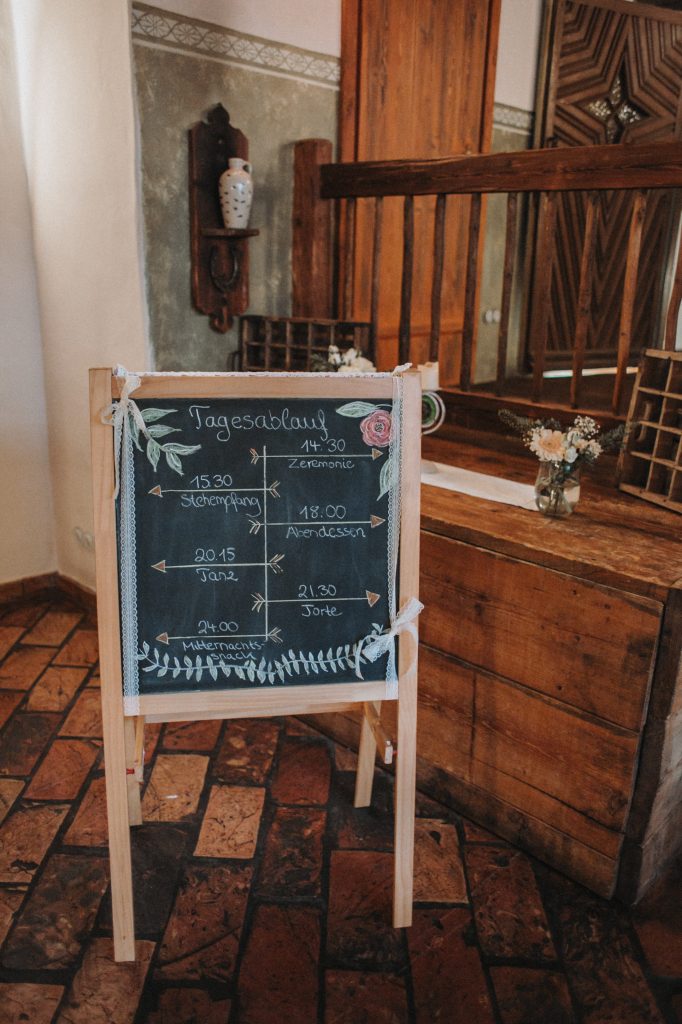 Tagesablauf
14.30
Zeremonie
15.30
Stehempfang
18.00
Abendessen
20.15
Tanz
21.30
Torte
24.00
Mitternachts-
snack